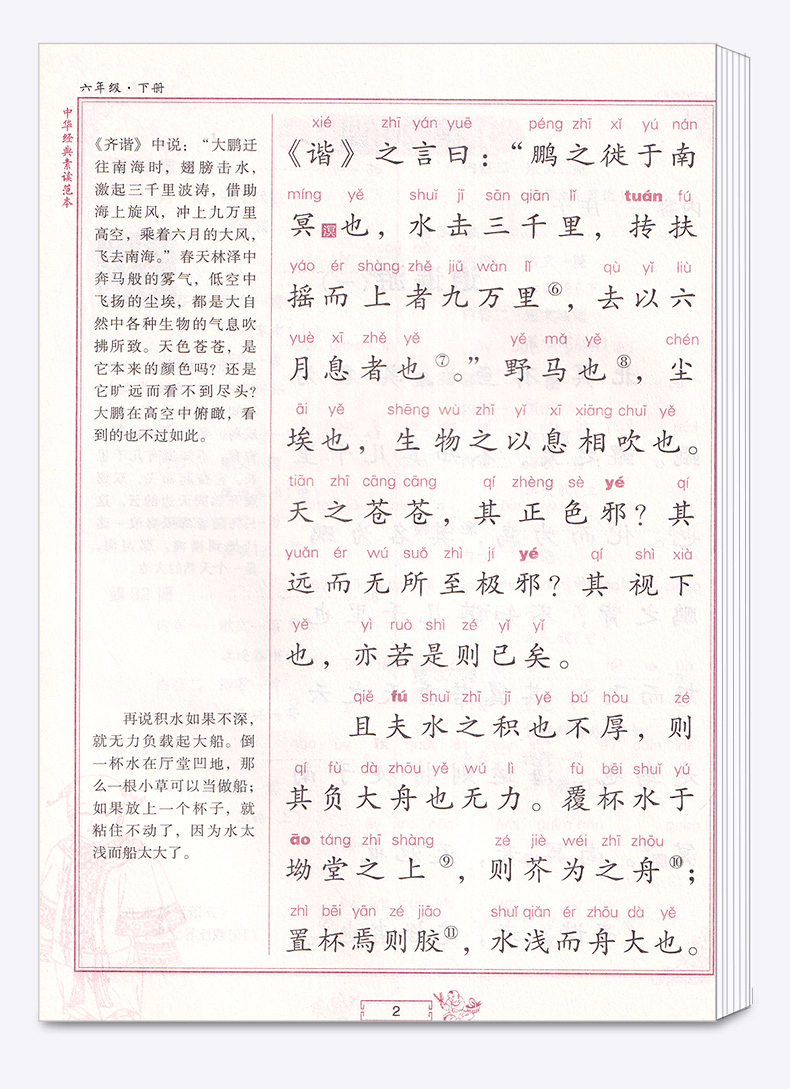 六年级·下册
中华经典素读范本
《齐谐》中说：“大鹏迁
往南海时，翅膀击水，
激起三千里波涛，借助
海上旋风，冲上九万里
高空，乘着六月的大风，
飞去南海。”春天林泽中
奔马般的雾气，低空中
飞扬的尘埃，都是大自
然中各种生物的气息吹
拂所致。天色苍苍，是
它本来的颜色吗？还是
它旷远而看不到尽头？
大鹏在高空中俯瞰，看
到的也不过如此。
再说积水如果不深，
就无力负载起大船。倒
一杯水在厅堂凹地，那
么一根小草可以当做船；
如果放上一个杯子，就
粘住不动了，因为水太
浅而船太大了。
xié zhī yán yuē péng zhī xǐ yú nán
《谐》之言曰：“鹏之徙于南
míng yě shuǐ jī sān qiān lǐ tuán fú
冥溟也，水击三千里，抟扶
yáo ér shàng zhě jiǔ wàn lǐ qù yǐ liù
摇而上者九万里⑥，去以六
yuè xī zhě yě yě mǎ yě chén
月息者也⑦。”野马也⑧，尘
āi yě shēng wù zhī yǐ xī xiāng chuī yě
埃也，生物之以息相吹也。
tiān zhī cāng cāng qí zhèng sè yé qí
天之苍苍，其正色邪？其
yuǎn ér wú suǒ zhì jí yé qí shì xià
远而无所至极邪？其视下
yě yì ruò shì zé yǐ yǐ
也，亦若是则已矣。
qiě fú shuǐ zhī jī yě bú hòu zé
且夫水之积也不厚，则
qí fù dà zhōu yě wú lì fù bēi shuǐ yú
其负大舟也无力。覆杯水于
āo táng zhī shàng zé jiè wéi zhī zhōu
坳堂之上⑨，则芥为之舟⑩；
zhì bēi yān zé jiāo shuǐ qiǎn ér zhōu dà yě
置杯焉则胶⑪，水浅而舟大也。
2